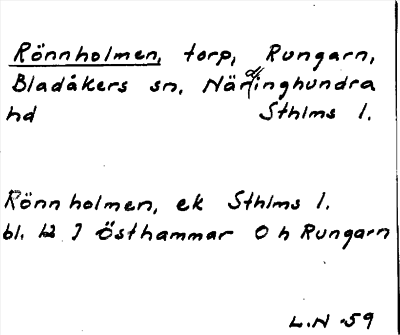 Rönnholmen, torp, Rungarn,
Bladåkers sn, Närdinghundra
hd Sthlms l.
Rönnholmen, ek Sthlms l.
bl. 12 J Östhammar O h Rungarn
L.N -59